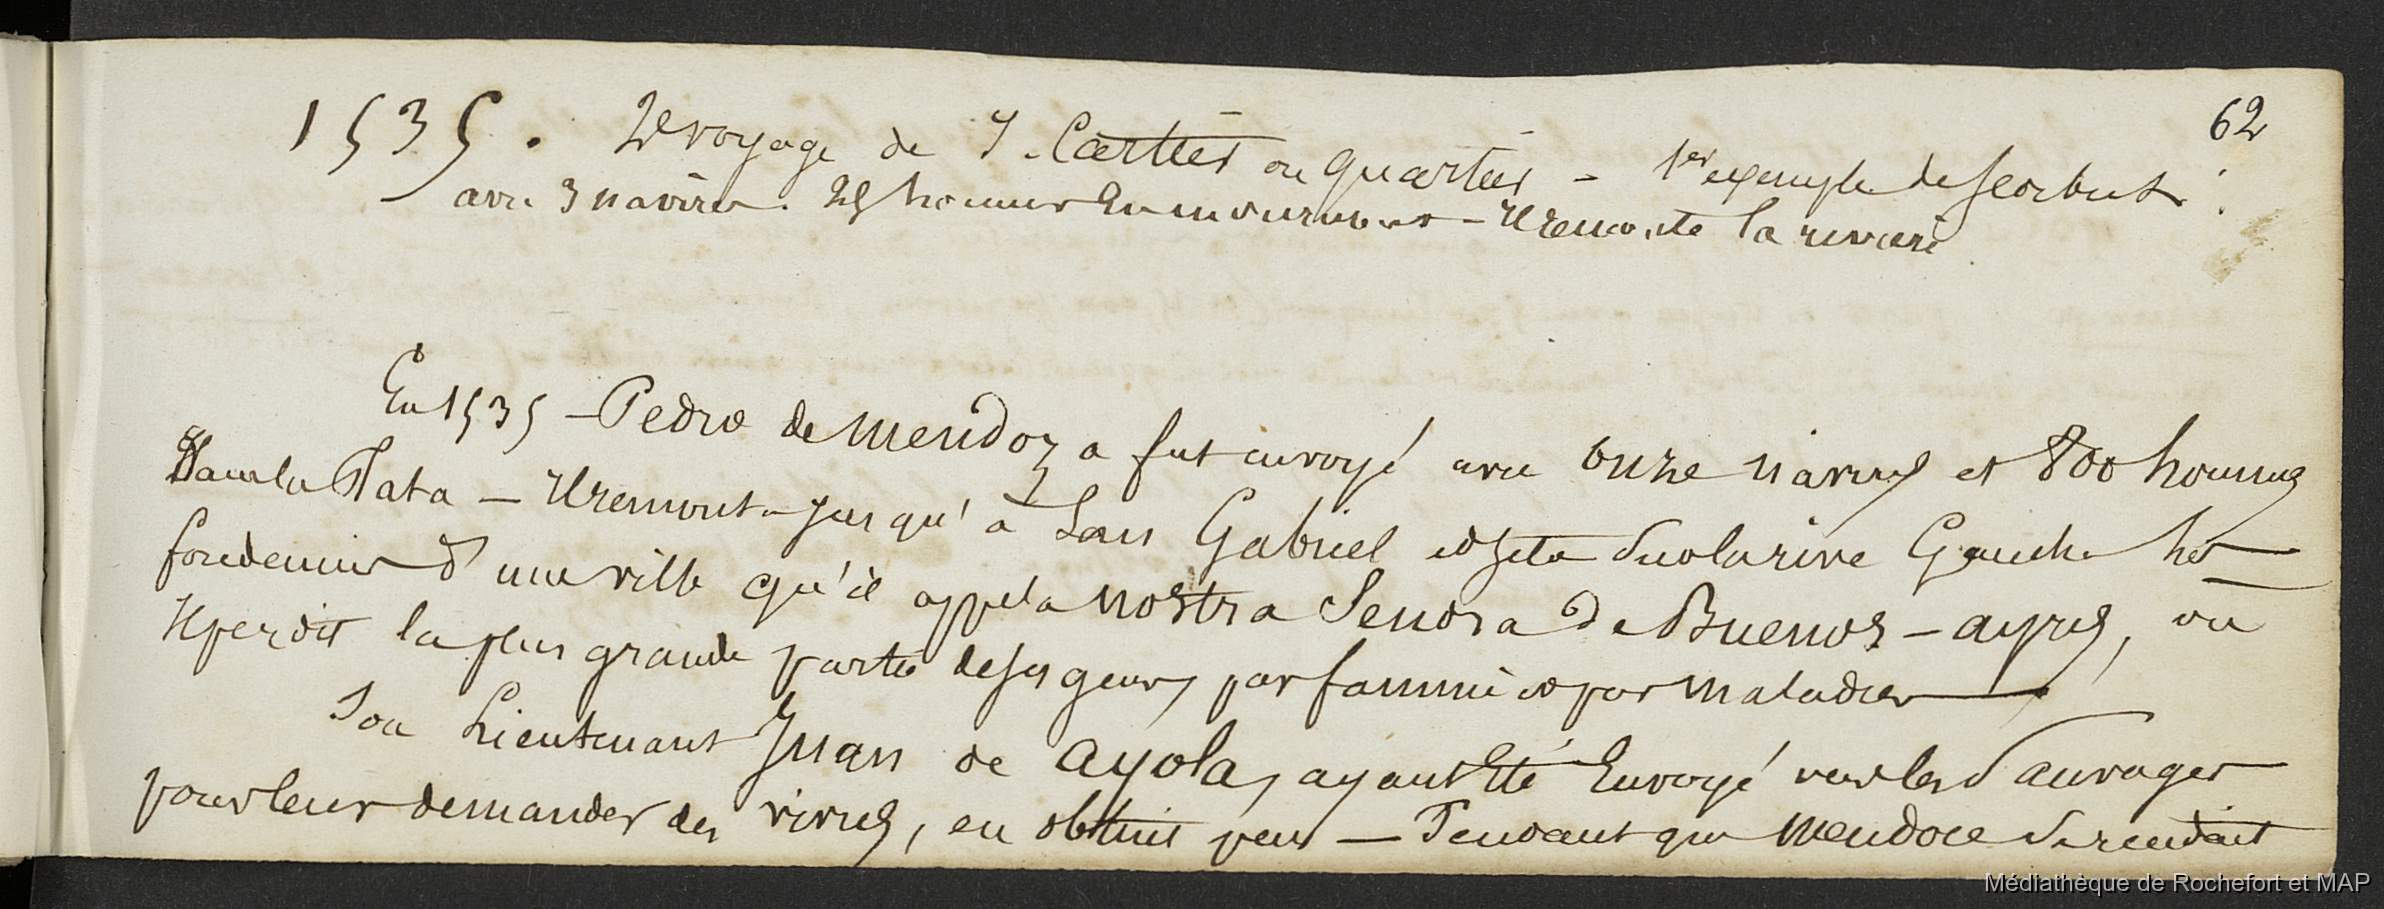 62
1535. 2e voyage de J. Cartier ou quartier - 1er exemple de scorbut
avec 3 navires. 25 hommes en moururent - Il remonte la riviere
En 1535 - Pedro de Mendoza fut envoyé avec onze navires et 800 hommes
Dans la Plata - Il remonta jusqu'à San Gabriel et jeta sur la rive Gauche les
fondemens d'une ville qu'il appela nostra Senora de Buenos-ayres, ou
Il perdit la plus grande partie de ses gens, par famine et par maladies
Son Lieutenant Juan de Ayola, ayant Eté Envoyé vers les Sauvages
pour leur demander des vivres, en obtint peu - Pendant que Mendoce se rendait
Médiathèque de Rochefort et MAP